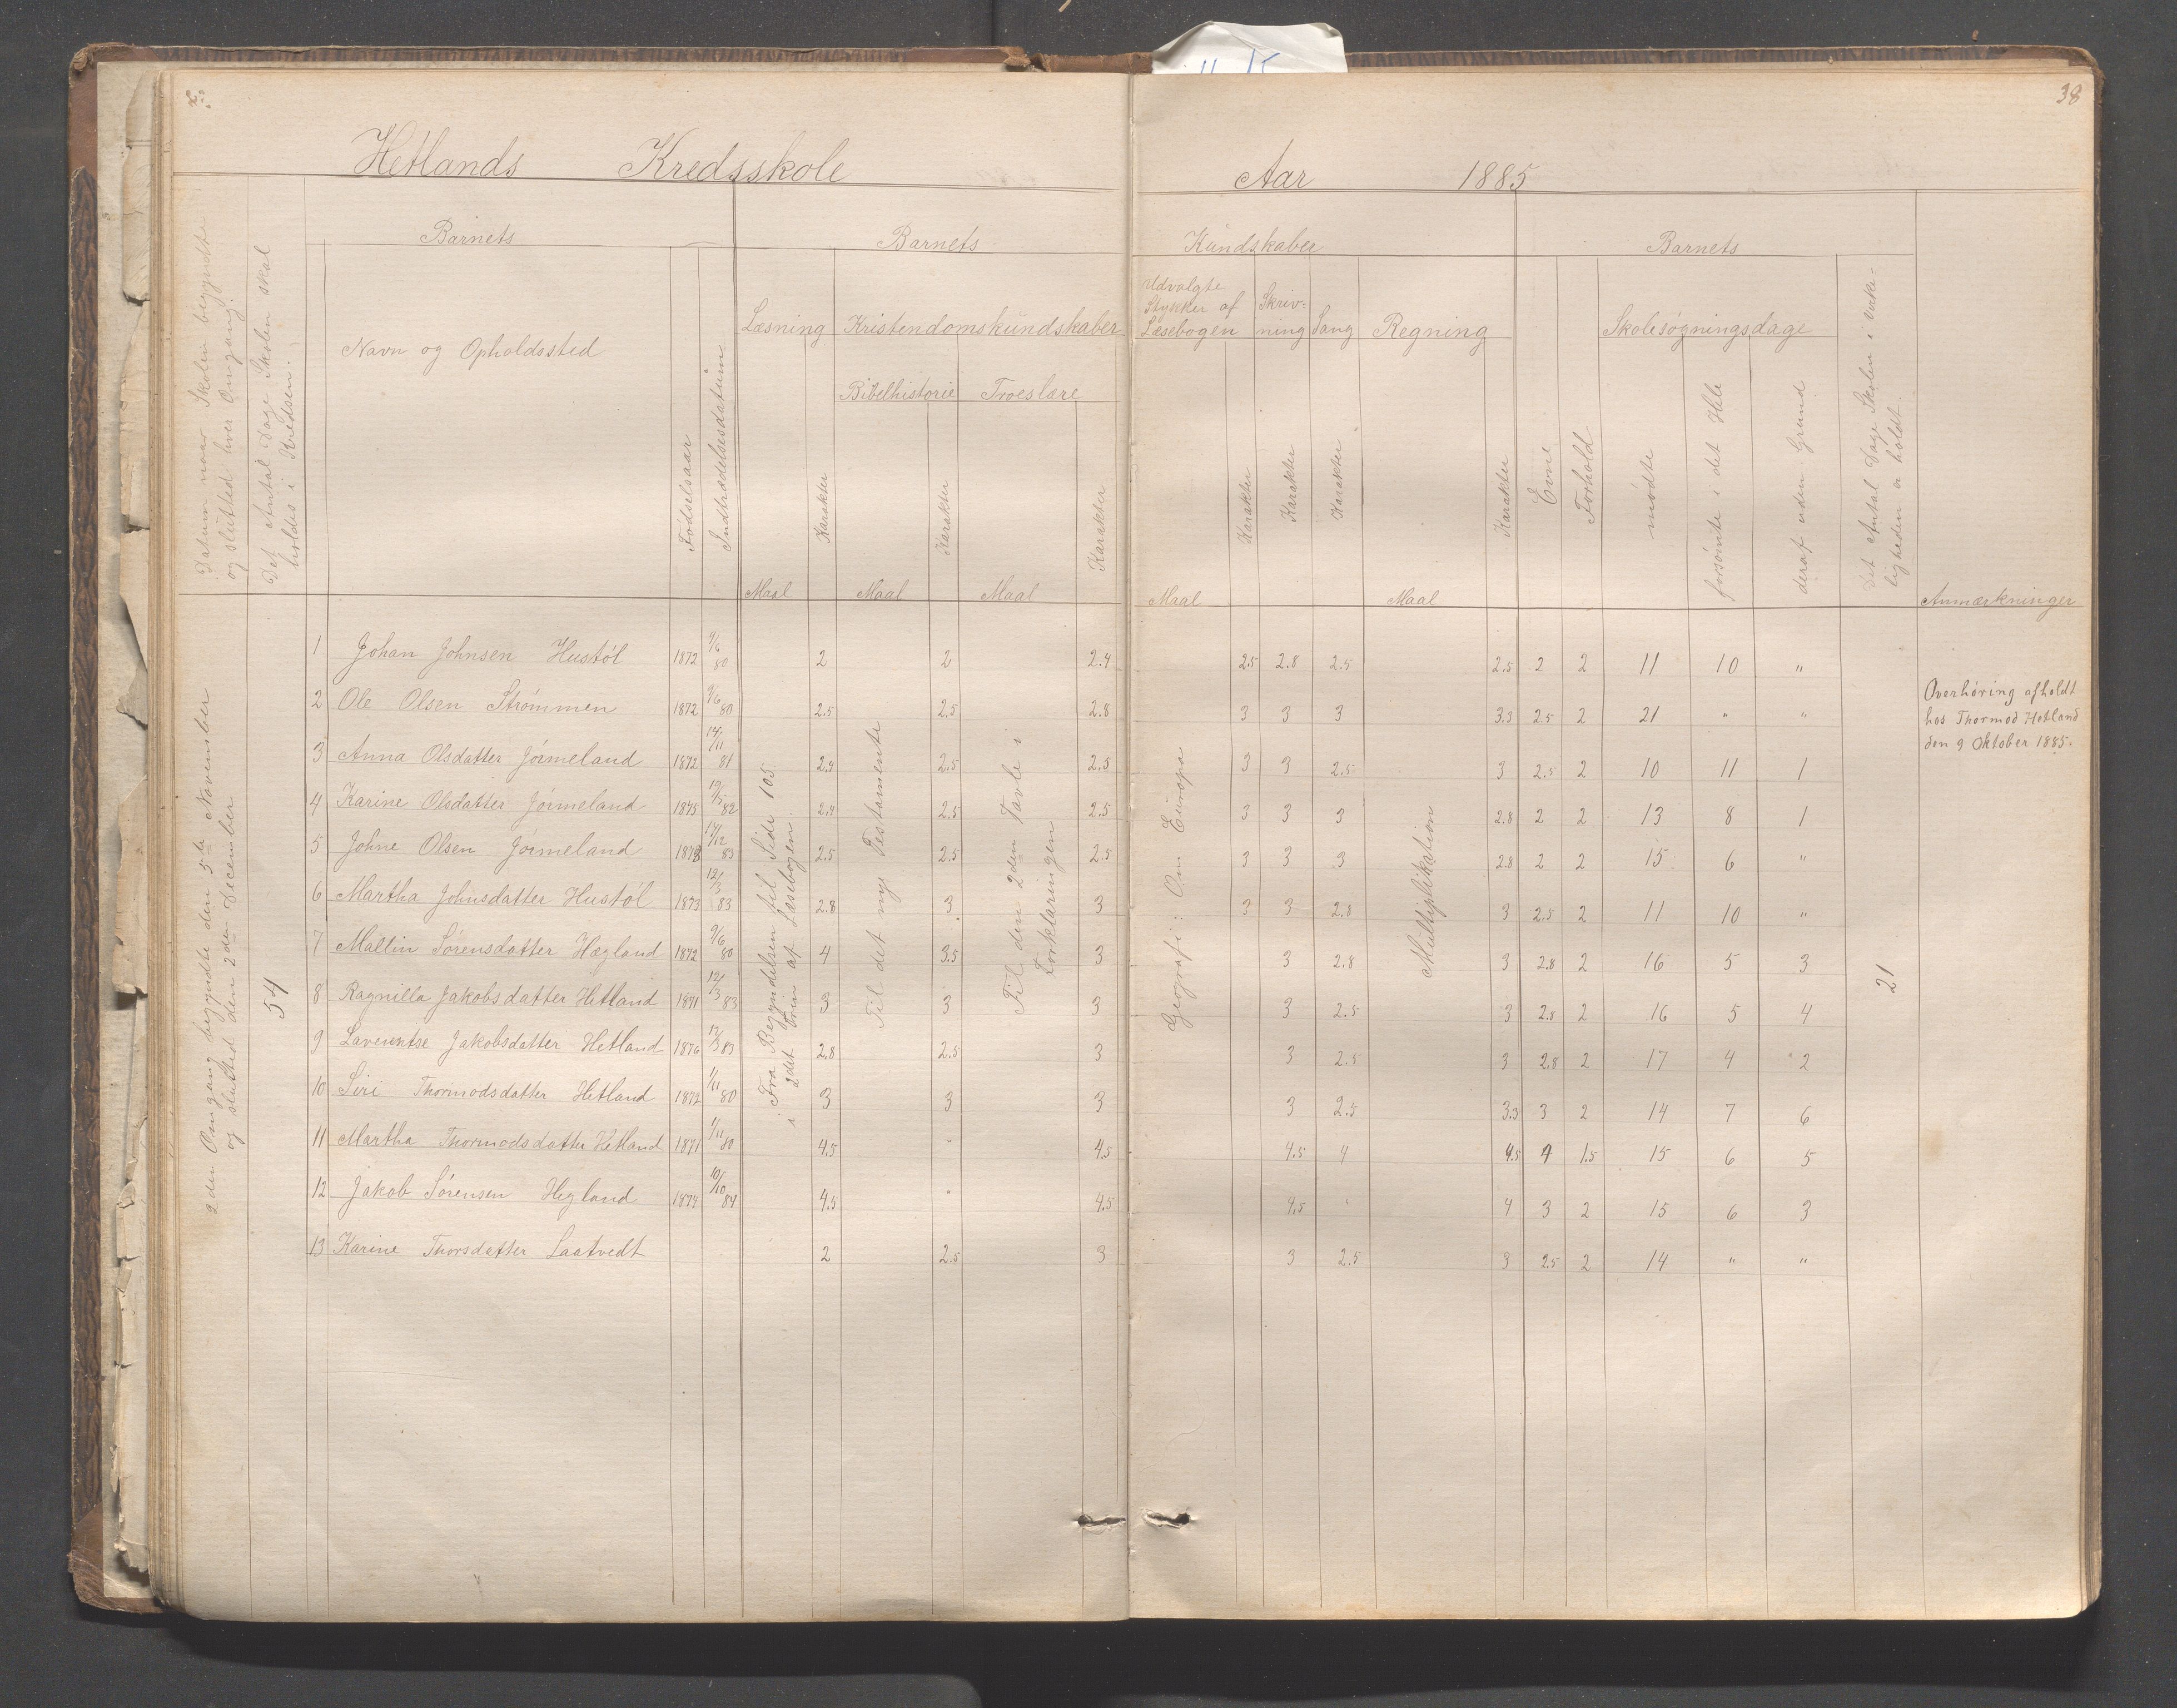 38
Hetlands Kredsskole Aar 1885
Datum naar Skolen begyndte og slutted hver Omgang.
Det Antal Dage Skolen skal holdes i Kredsen.
Barnets
Navn og Opholdssted
Fødselsaar
Indtrædelsesdatum
Barnets Kundskaber
Læsning Kristendomskundskaber
Bibelhistorie Troeslære
Maal Karakter Maal Karakter Maal Karakter
Udvalgte Stykker af Læsebogen Skriv-ning Sang Regning
Maal Karakter Karakter Karakter Maal Karakter
Barnets
Evne Forhold
Skolesøgningsdage
mødte forsømte i det Hele deraf uden Grund
Det Antal Dage Skolen i virke-ligheden er holdt.
Anmærkninger
2den Omgang begyndte den 5te November og slutted den 2den December
54
i Fra Begyndelsen til Side 105
2det Trin af Læsebogen.
Til det nye Testamente
Til den 2den Tavle i Forklaringen
Geografi: Om Europa
Multiplikation
21
1 Johan Johnsen Hustøl 1872 9/6 80 2 2 2.4 2.5 2.8 2.5 2.5 2 2 11 10 "
2 Ole Olsen Strømmen 1872 9/6 80 2.5 2.5 2.8 3 3 3 3.3 2.5 2 21 " "
3 Anna Olsdatter Jørmeland 1872 14/11 81 2.4 2.5 2.5 3 3 2.5 3 2.5 2 10 11 1
4 Karine Olsdatter Jørmeland 1875 19/5 82 2.4 2.5 2.5 3 3 3 2.8 2 2 13 8 1
5 Johne Olsen Jørmeland 1873 17/12 83 2.5 2.5 2.5 3 3 3 2.8 2 2 15 6 "
6 Martha Johnsdatter Hustøl 1873 12/3 83 2.8 3 3 3 3 2.8 3 2.5 2 11 10 "
7 Mallin Sørensdatter Hægland 1872 9/6 80 4 3.5 3 3 2.8 3 2.8 2 16 5 3
8 Ragnilla Jakobsdatter Hetland 1871 12/3 83 3 3 3 3 2.5 3 2.8 2 16 5 4
9 Laventse Jakobsdatter Hetland 1876 12/3 83 2.8 2.5 3 3 2.5 3 2.8 2 17 4 2
10 Siri Thormodsdatter Hetland 1872 1/11 80 3 3 3 3 2.5 3.3 3 2 14 7 6
11 Martha Thormodsdatter Hetland 1871 1/11 80 4.5 " 4.5 4.5 4 4.5 4 1.5 15 6 5
12 Jakob Sørensen Hegland 1874 10/10 84 4.5 " 4.5 4.5 " 4 3 2 15 6 3
13 Karine Thorsdatter Laatvedt 2 2.5 3 3 2.5 3 2.5 2 14 " "
Overhøring afholdt
hos Thormod Hetland
den 9 Oktober 1885.